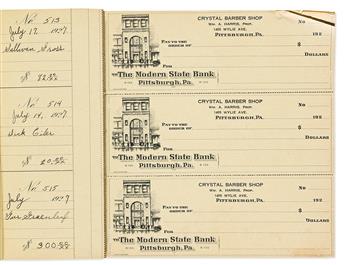 No 513
July 17, 1927
Sullivan Gross
$ 82.50
No 514
July 14, 1927
Dick
$ 20.00
No 515
July 1927
Gus Greenlee
$ 300.00
CRYSTAL BARBER SHOP
WM. A. HARRIS, PROP.
1400 WYLIE AVE.
PITTSBURGH, PA.
No
192
PAY TO THE
ORDER OF
$
DOLLARS
FOR
TO The Modern State Bank
Pittsburgh, Pa.
CRYSTAL BARBER SHOP
WM. A. HARRIS, PROP.
1400 WYLIE AVE.
PITTSBURGH, PA.
No
192
PAY TO THE
ORDER OF
$
DOLLARS
FOR
TO The Modern State Bank
Pittsburgh, Pa.
CRYSTAL BARBER SHOP
WM. A. HARRIS, PROP.
1400 WYLIE AVE.
PITTSBURGH, PA.
No
192
PAY TO THE
ORDER OF
$
DOLLARS
FOR
TO The Modern State Bank
Pittsburgh, Pa.